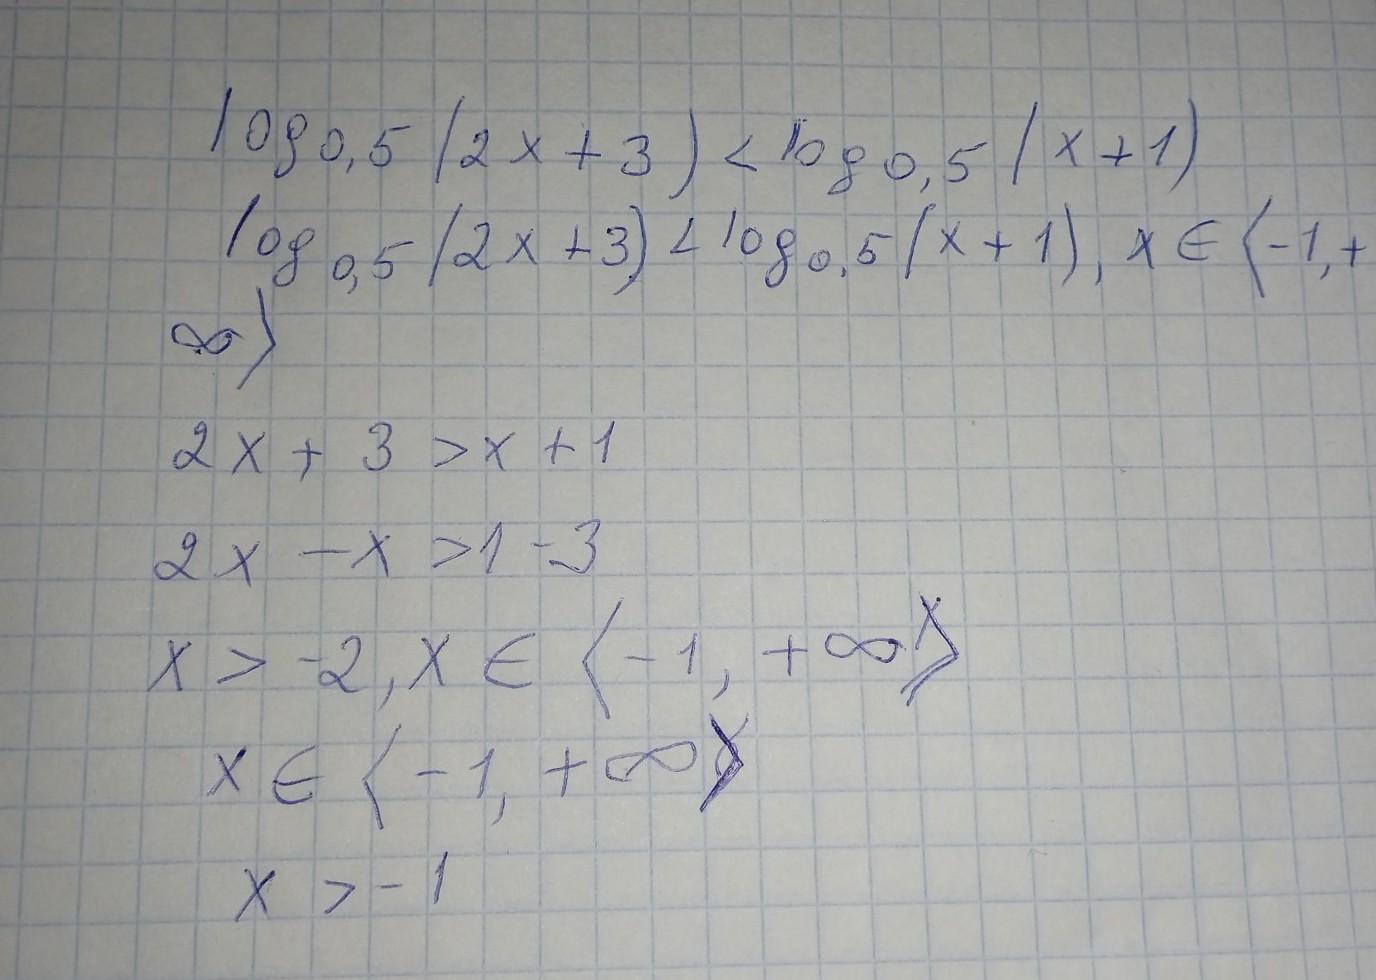 log₀,₅(2x+3)<log₀,₅(x+1)
log₀,₅(2x+3)<log₀,₅(x+1), x∈⟨-1,+
∞⟩
2x+3>x+1
2x-x>1-3
x>-2, x∈⟨-1,+∞⟩
x∈⟨-1,+∞⟩
x>-1